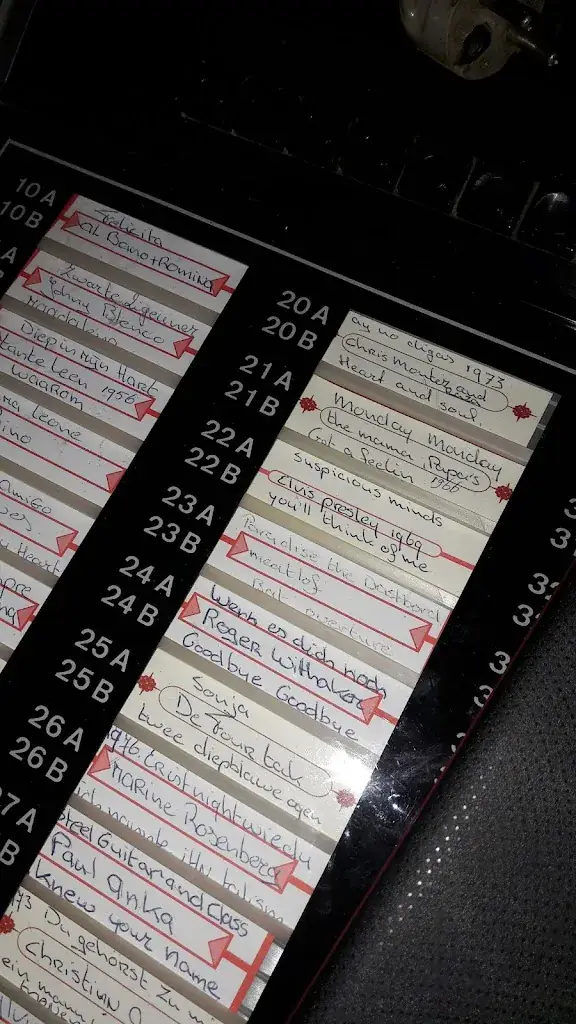 10A
10B
Felicita
Al Bano + Romina
Zwarte zigeuner
Diep in mijn Hart
tante leen 1956
waarom
leone
Amigo
Heart
20A
20B
ay no digas 1973
Chris Montez and
Heart and soul.
21A
21B
Monday Monday
the mama, Papa's
Got a feelin 1966
22A
22B
suspicious minds
elvis presley 1969
you'll think of me
23A
23B
Paradise the Dashboard
meatlof
24A
24B
Wenn es dich noch
Roger Withaker
Goodbye Goodbye
25A
25B
Sonja
De Four tak
twee diepblauwe ogen
26A
26B
1976.
Marine Rosenberg
27A
B
steel Guitar and Class
Paul Anka
knew your name
73 Du gehorst zu mi
Christian A
ein mann
3
3
3
3
3
3